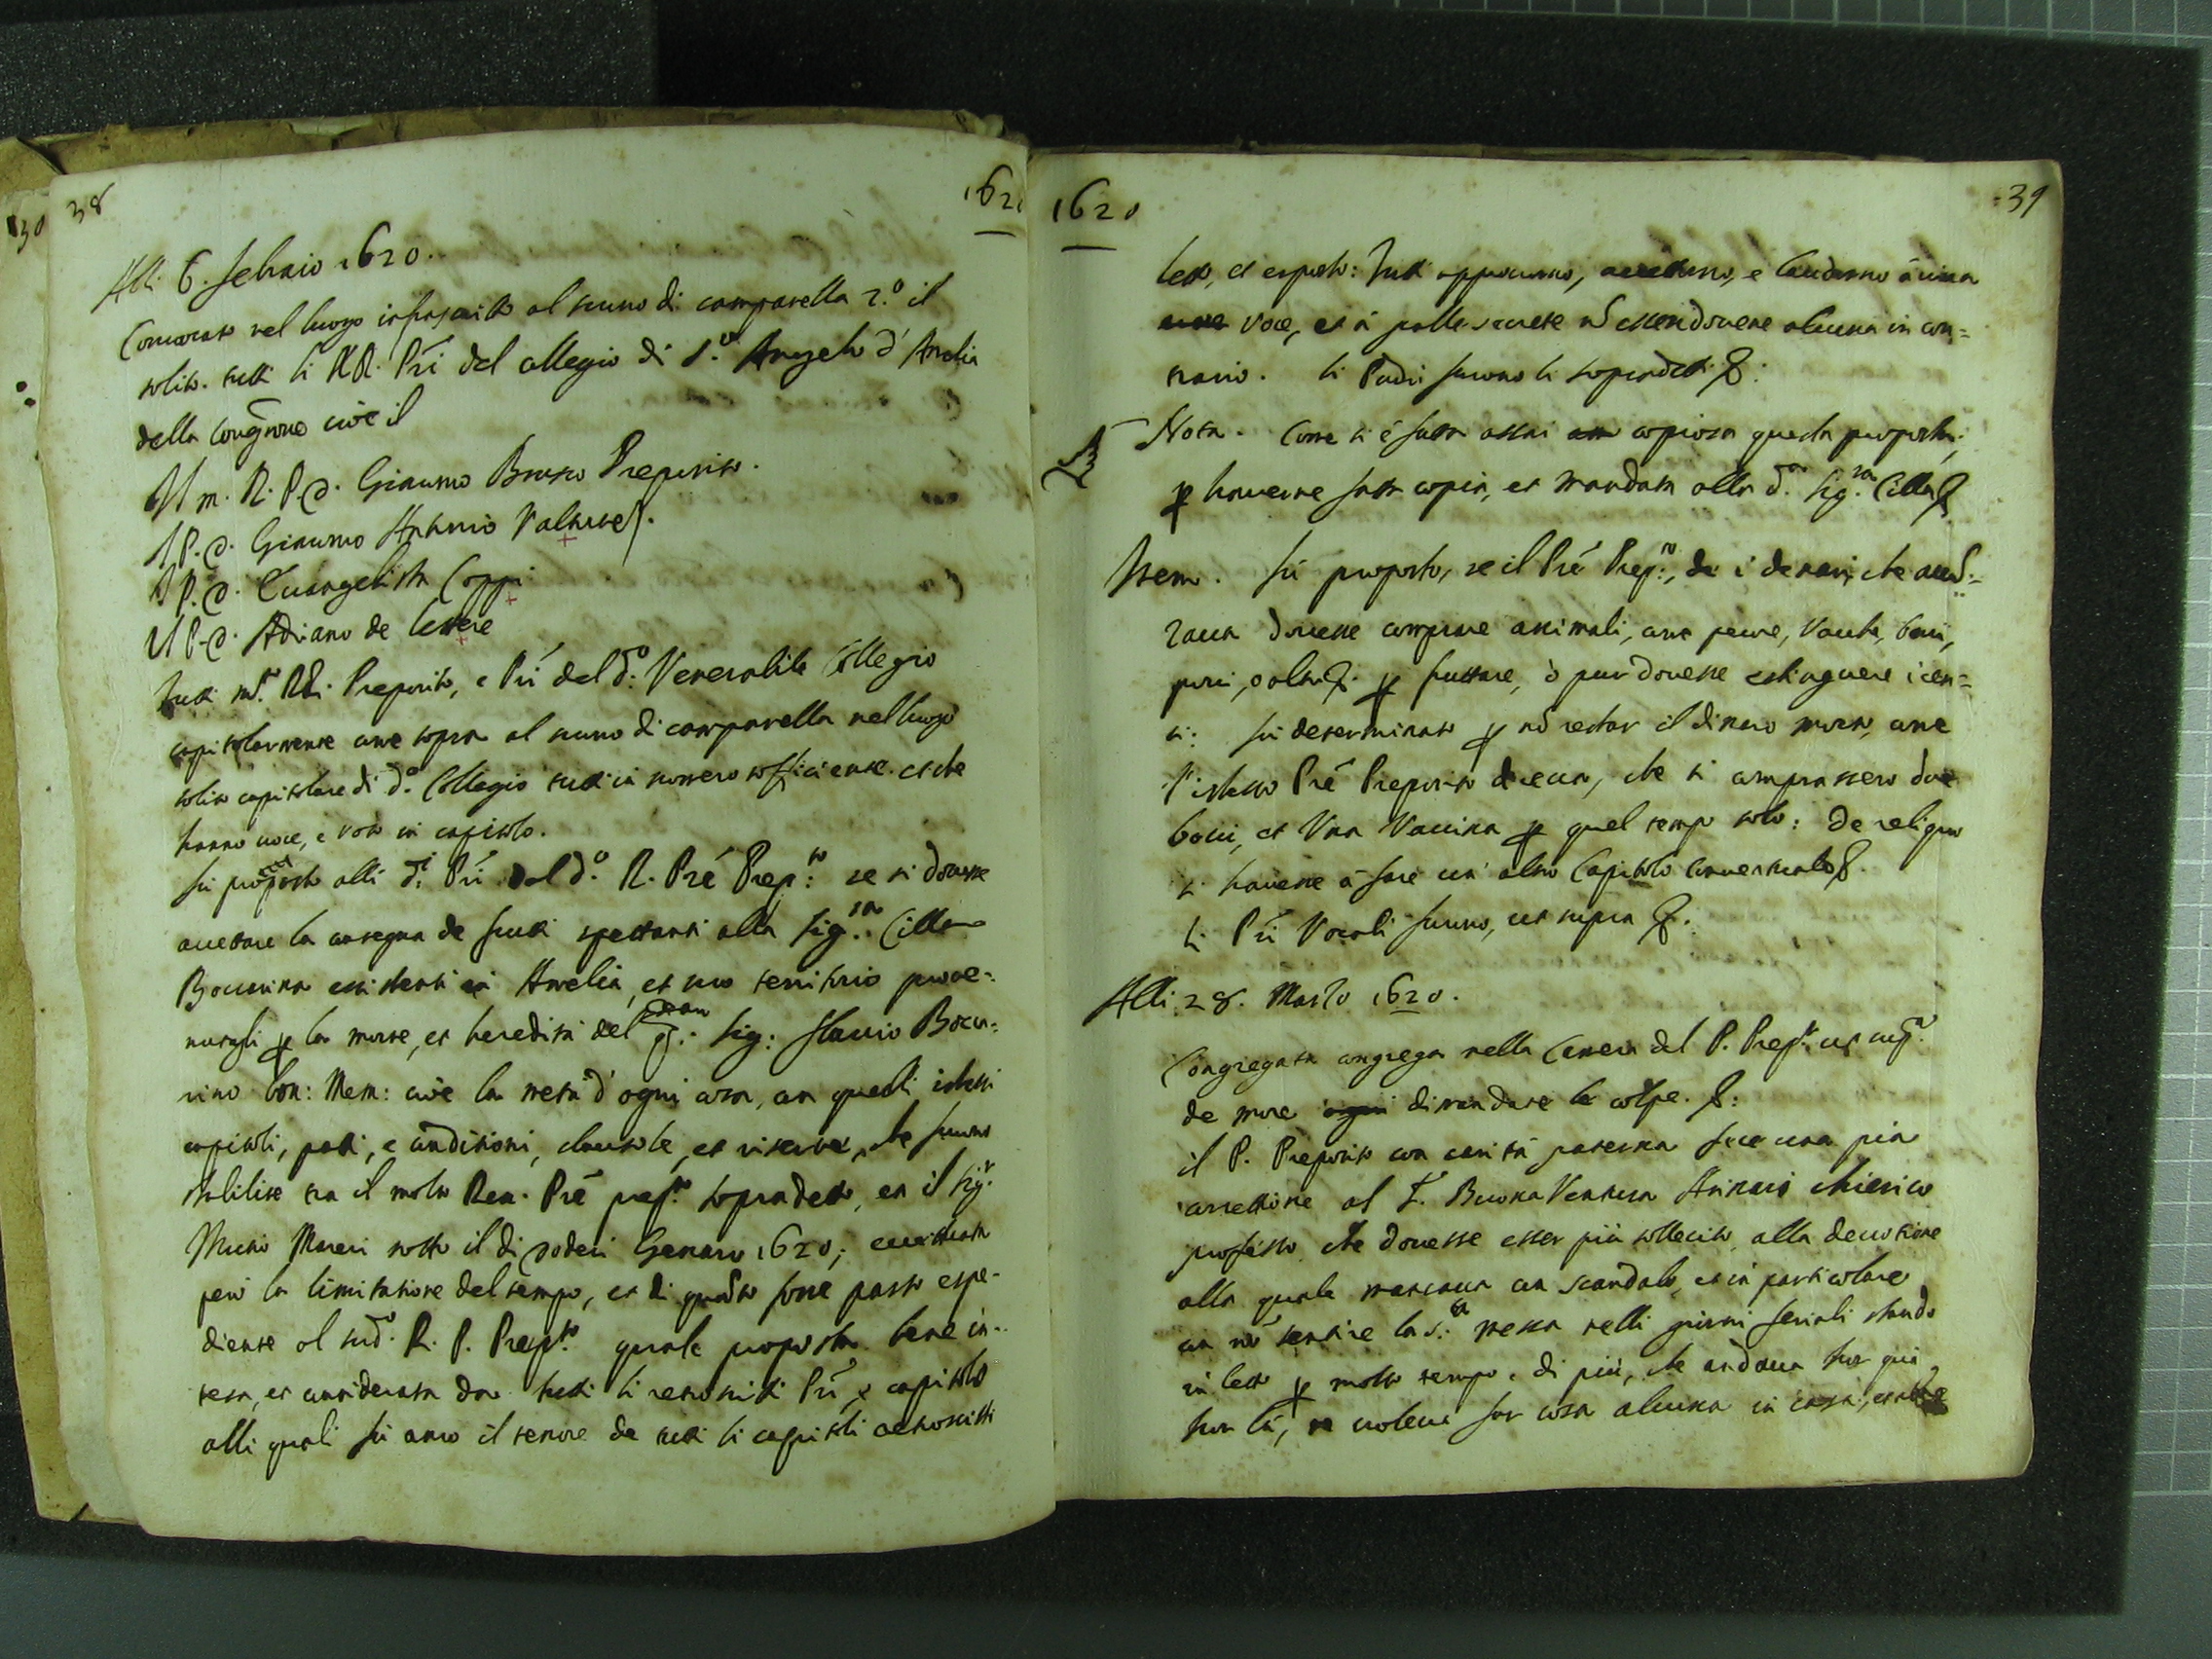 30
38
1620
Alli 6. febraio 1620.
Convocato nel luogo infrascritto al suono di campanella 2.º il
solito. tutti li RR. Pri del collegio di S.º Angelo d'Amelia
della congne cioè il
Il m. R. P. D. Giacomo Brusco Preposito.
Il P. D. Giacomo Antonio Valtorta.
Il P. D. Evangelista Coppi
Il P. D. Adriano de Lettere
tutti mt. RR. Preposito, e Pri del d.º Venerabile Collegio
capitolarmente come sopra al suono di campanella nel luogo
solito capitolare di d.º Collegio tutti in numero sofficiente. et che
hanno voce, e voto in capitolo.
fu proposto alli d.i Pri dal d.º R. Pre Prep.to se si dovesse
accettare la consegna de frutti spettanti alla Sig.ra Cilla
Bocarina esistenti in Amelia, et suo territorio prove-
nutigli p la morte, et heredità del q. Sig: Flavio Boca-
rino bon: Mem: cioè la metà d'ogni cosa, con quelli istessi
capitoli, patti, e conditioni, clausole, et riserve, che furno
stabilite tra il molto Reu. Pre prep.to sopradetto, et il Sig.r
Mutio Mareri sotto il di dodeci Genaro 1620; eccettuata
però la limitatione del tempo, et di quanto fosse parso espe-
diente al sud.º R. P. Prep.to quale proposta bene in-
tesa, et considerata da tutti li retroscritti Pri, e capitolo
alli quali fu anco il tenore de tutti li capitoli retroscritti
1620
39
letto, et esposto: tutti approvorno, accettorno, e laudorno à viva
voce, et à palle secrete nõ essendovene alcuna in con-
trario. li Padri furono li sopradetti &:
Nota. Come si è fatta assai copiosa questa proposta;
p haverne fatta copia, et mandata alla d.a Sig.ra Cilla &
Item. fu proposto, se il Pre Prep.to, de i denari, che avan-
zava dovesse comprare animali, come pecore, vacche, bovi,
porci, o altro &. p fruttare, ò pur dovesse estinguere i cen-
si: fu determinato p nõ restar il dinaro morto, come
l'istesso Pre Preposito diceva, che si comprassero doe
bovi, et Una Vaccina p quel tempo solo: de reliquo
si havesse à fare un' altro Capitolo conventuale &.
li Pri Vocali furno, ut supra &.
Alli 28. Marzo 1620.
Congregata congrega nella Camera del P. Prep.to ut sup.a
de more dimandare le colpe. &:
il P. Preposito con carità paterna fece una pia
correttione al F. Buona Ventura chierico
professo, che dovesse esser più sollecito alla devotione
alla quale mancava con scandalo, et in particolare
con nõ sentire la S.ta messa nelli giorni feriali stando
in letto p molto tempo. di più, che andava hor quà
hor là, ne voleva far cosa alcuna in casa,